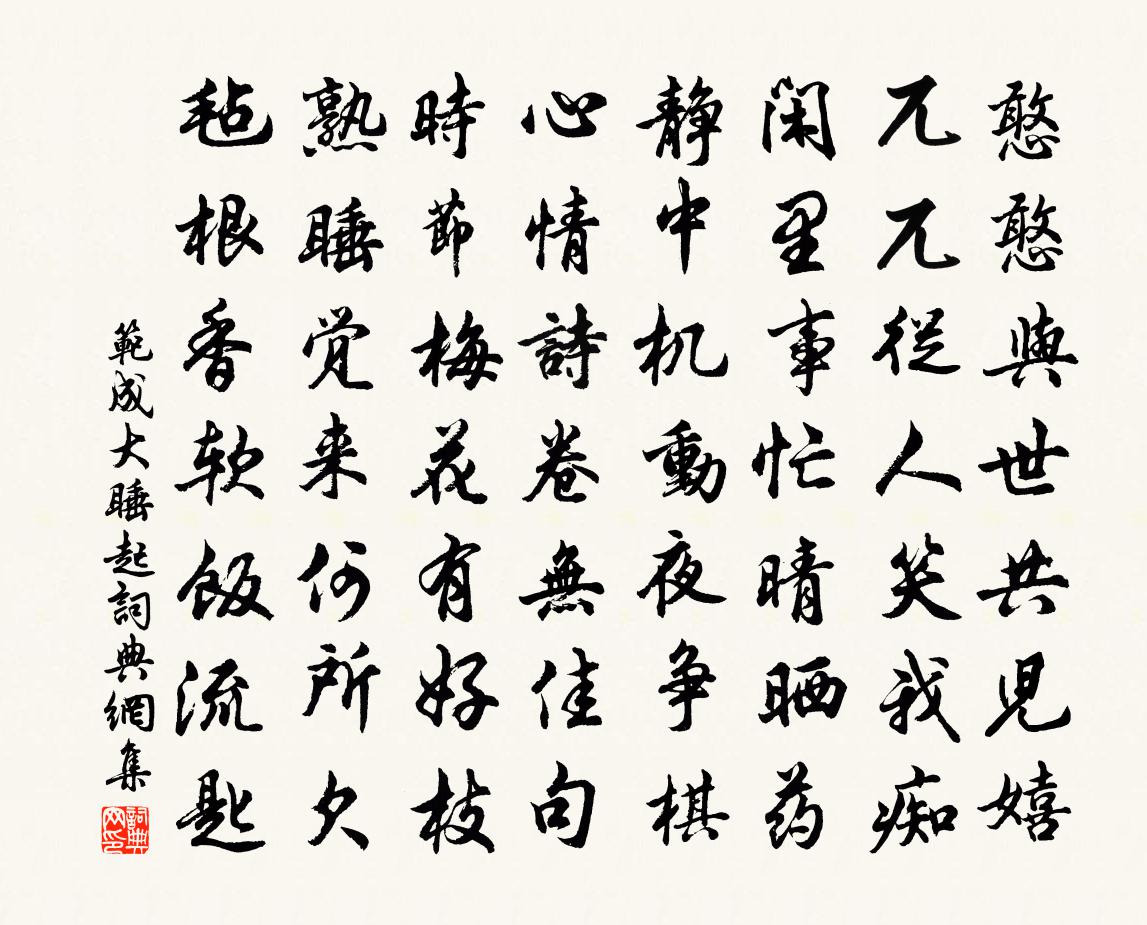 憨憨與世共児嬉
兀兀従人笑我痴
閑里事忙晴晒药
静中机動夜争棋
心情詩卷無佳句
時節梅花有好枝
熟睡觉来何所欠
毡根香软飯流匙
範成大睡起詞典網集
詞典网印